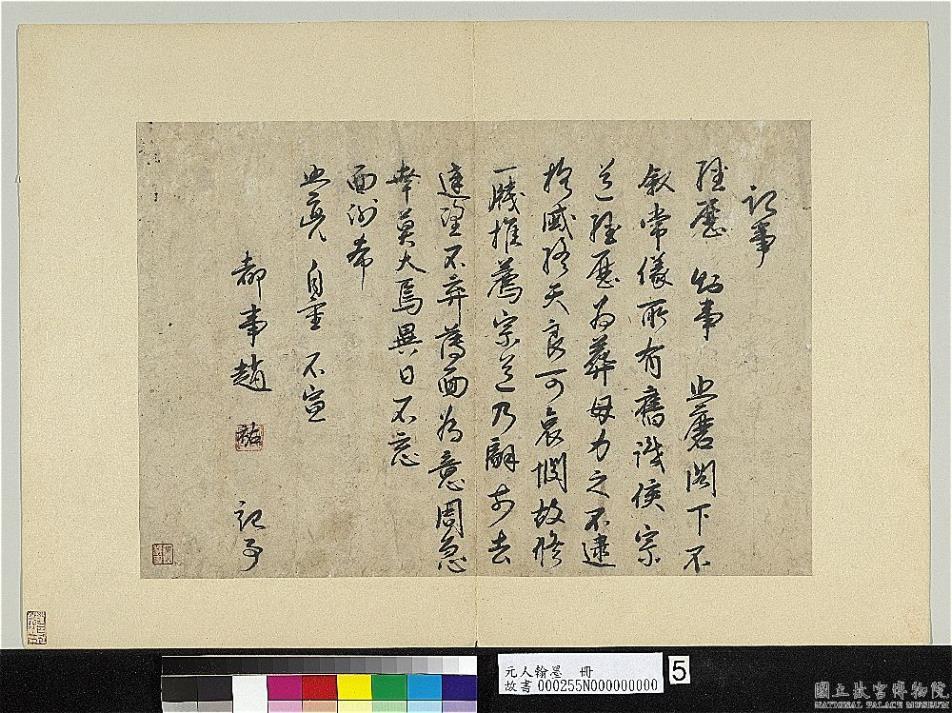 記事
經歷 知事 照磨閣下不
敘常儀所有舊識侯宗
道經歷為葬母力之不逮
於天良可哀憫故修
一牋推薦宗道乃辭前去
達望不棄薄面為意周急
幸莫大焉異日不忘
面謝希
照亮 自重 不宣
都事趙 記事
元人翰墨 冊
故書 000255N000000000
5
國立故宮博物院
NATIONAL PALACE MUSEUM